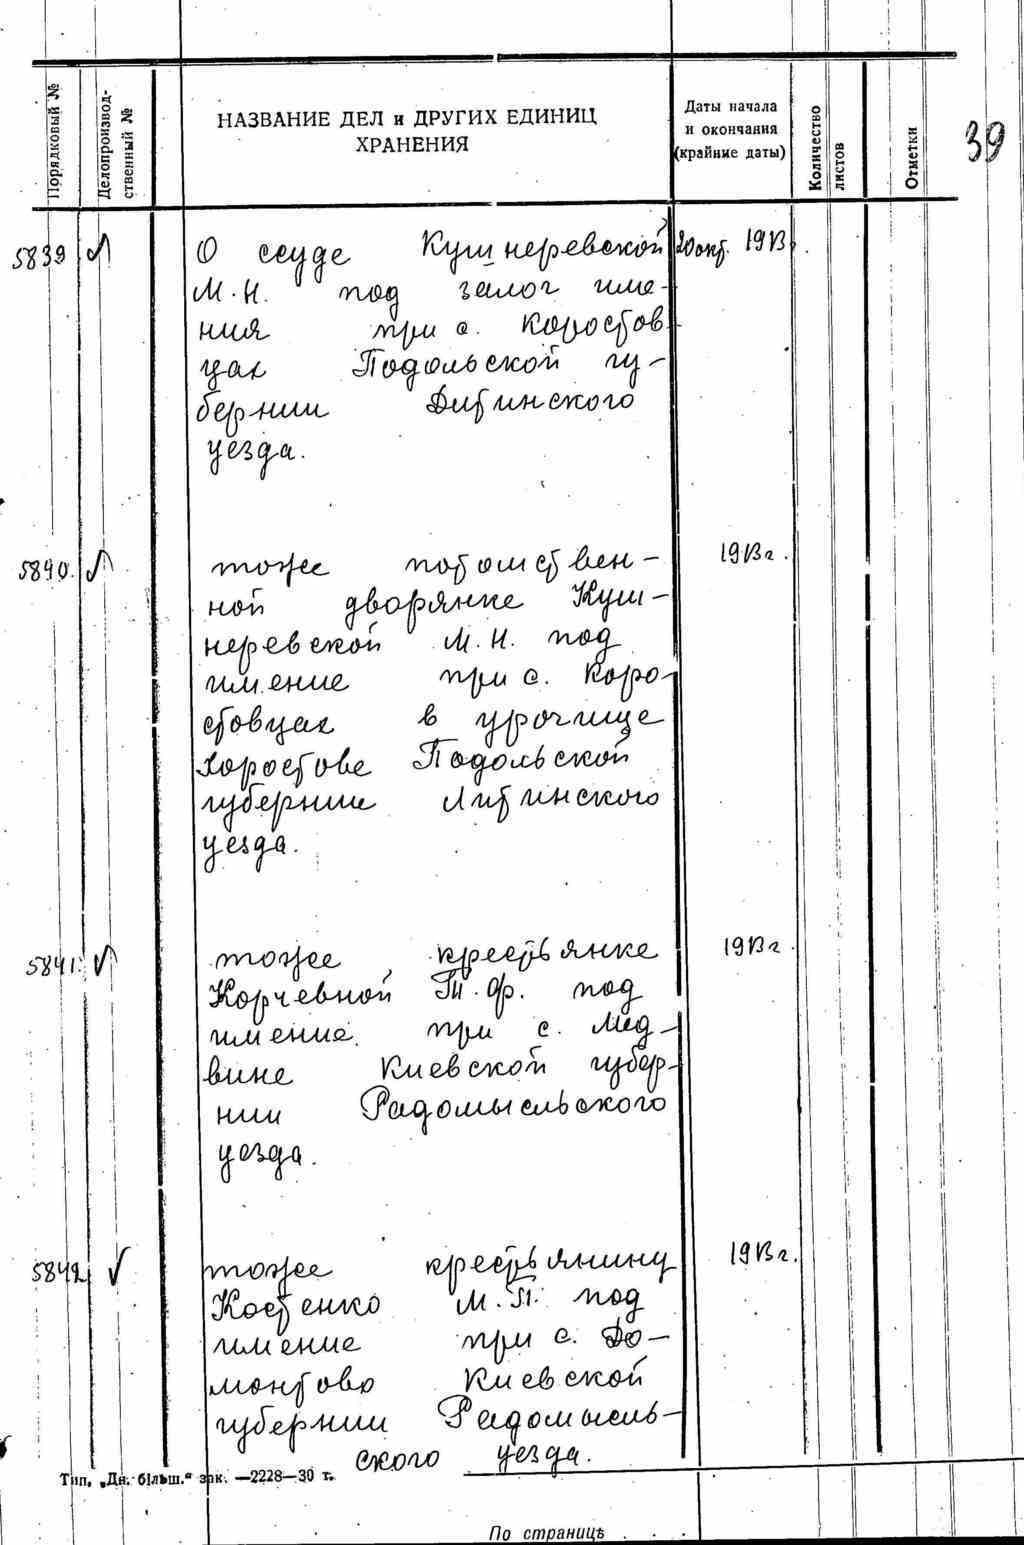 Порядковый №
Делопроизвод-
ственный №
НАЗВАНИЕ ДЕЛ и ДРУГИХ ЕДИНИЦ
ХРАНЕНИЯ
Даты начала
и окончания
(крайние даты)
Количество
листов
Отметки
39
5839 О ссуде Кушнеревской 20 окт. 1913
М. Н. под залог име-
ния при с. Коростов
цах Подольской гу-
бернии Литинского
уезда.
5890. тоже потомствен- 1913 г.
ной дворянке Куш-
неревской М. Н. под
имение при с. Коро-
стовцах в урочище
Хоростове Подольской
губернии Литинского
уезда.
5841. тоже крестьянке 1913 г.
Корчевной Т. Ф. под
имение при с. Мед-
вине Киевской губер-
нии Радомысльского
уезда.
5842 тоже крестьянину 1913 г.
Костенко М. П. под
имение при с. До-
монтово Киевской
губернии Радомысль-
ского уезда.
Тип. „Дн. більш.“ зак. —2228—30 т.
По страницѣ . . .